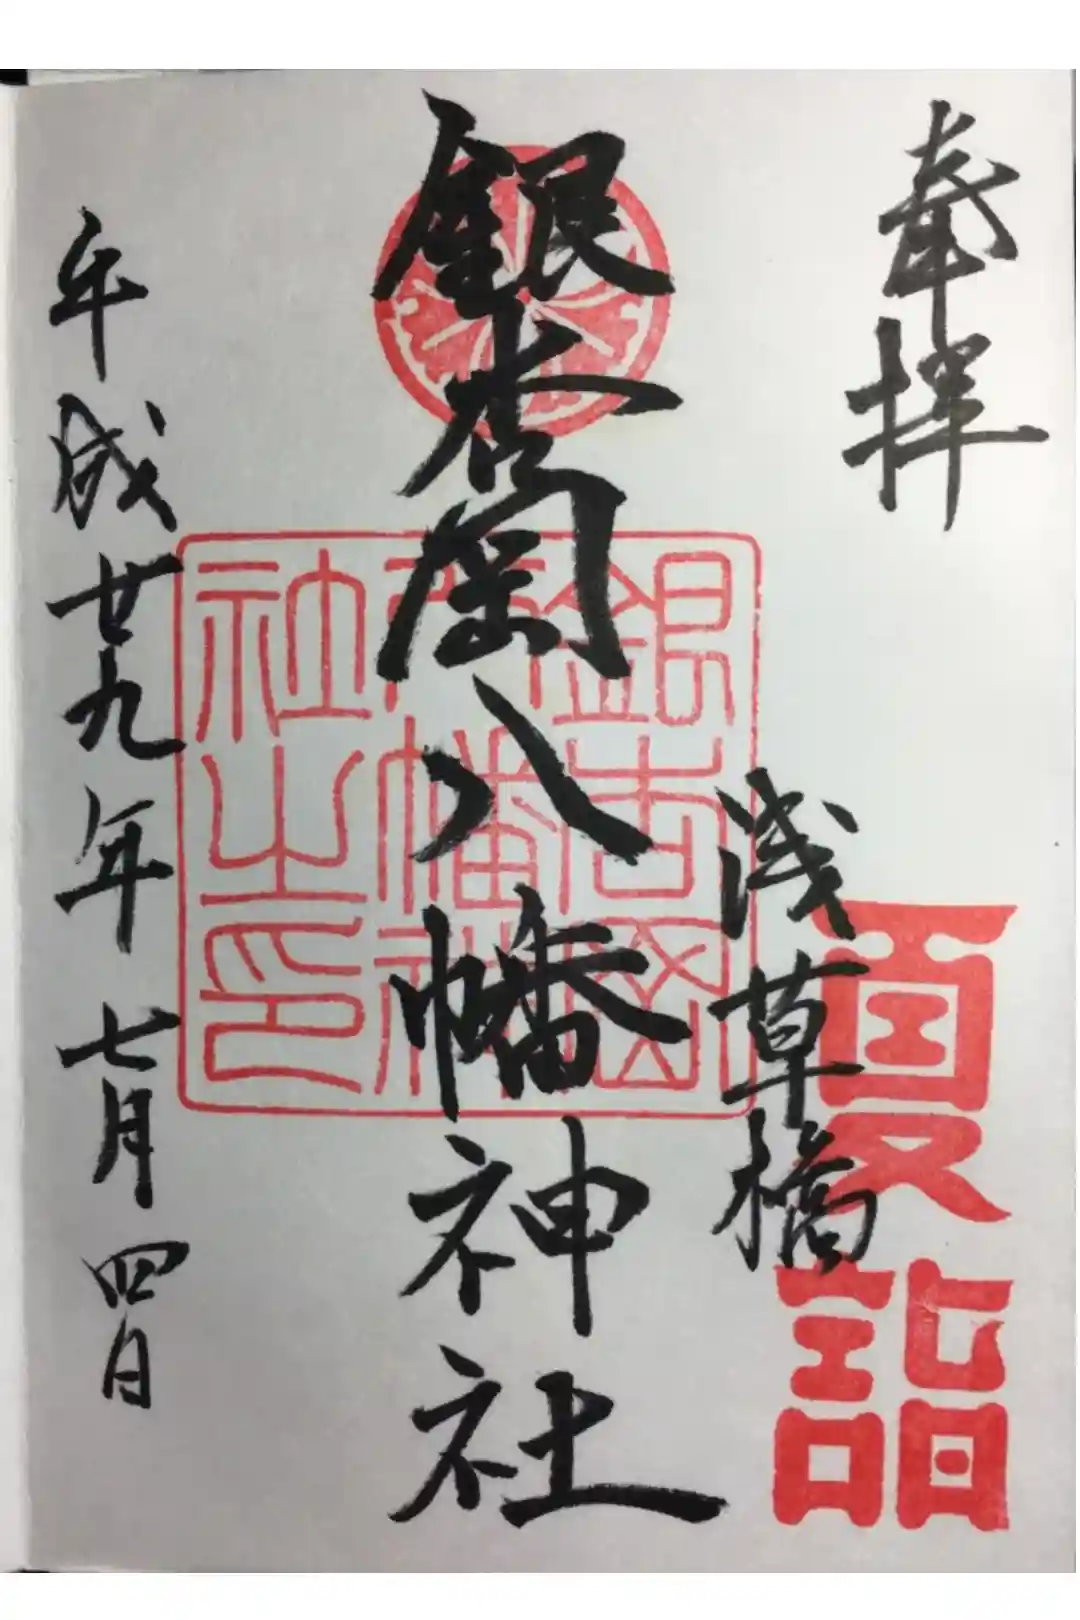 奉拝
浅草橋
夏詣
銀杏岡八幡神社
銀杏岡
八幡神
社之印
平成廿九年七月四日